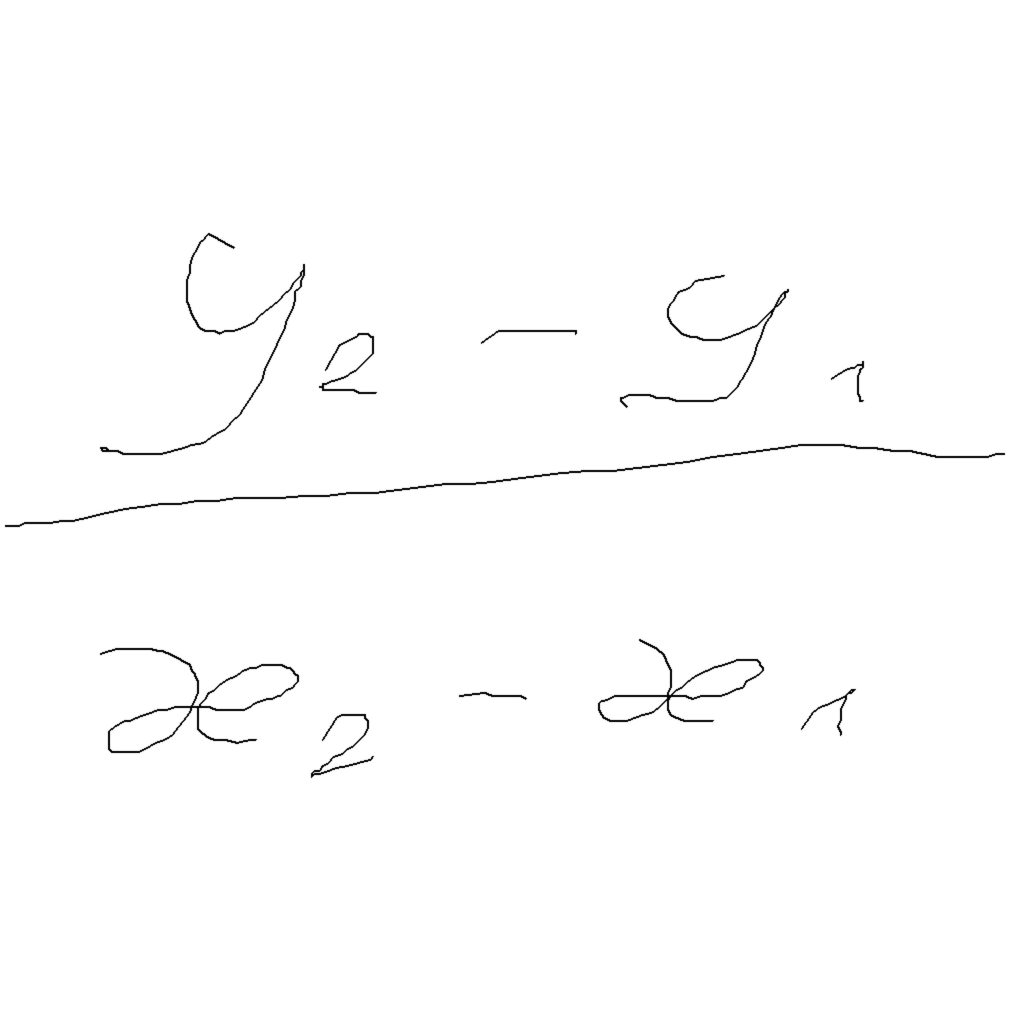 y₂ - y₁
x₂ - x₁